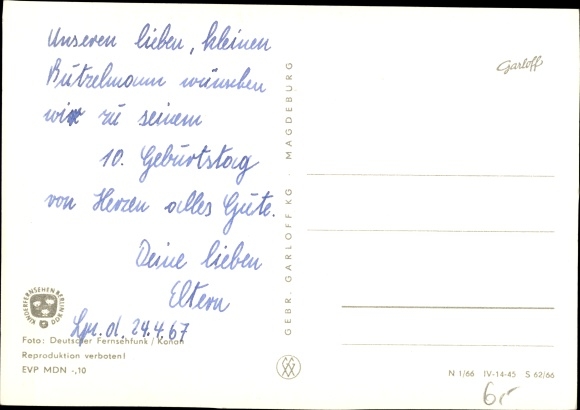 Unseren lieben, kleinen
Butzelmann wünschen
wir zu seinem
10. Geburtstag
von Herzen alles Gute.
Deine lieben
Eltern
Lpz. d. 24.4.67
KINDERFERNSEHEN BERLIN DDR
Foto: Deutscher Fernsehfunk / Konon
Reproduktion verboten!
EVP MDN -,10
GEBR. GARLOFF KG · MAGDEBURG
Garloff
N 1/66 IV-14-45 S 62/66
6,-